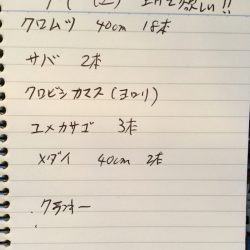 クロムツ 40cm 18本
サバ 2本
クロビシカマス(ヨロリ)
ユメカサゴ 3本
メダイ 40cm 2本